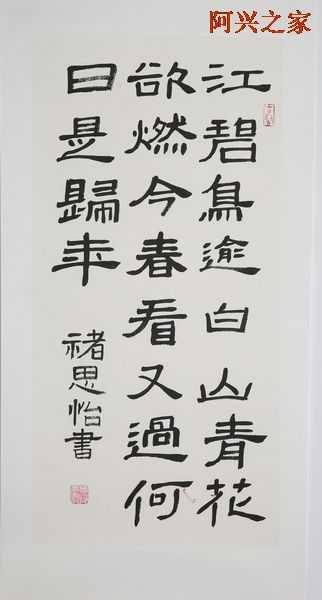 阿兴之家
江碧鳥逾白山青花
欲燃今春看又過何
日是歸年
褚思怡書